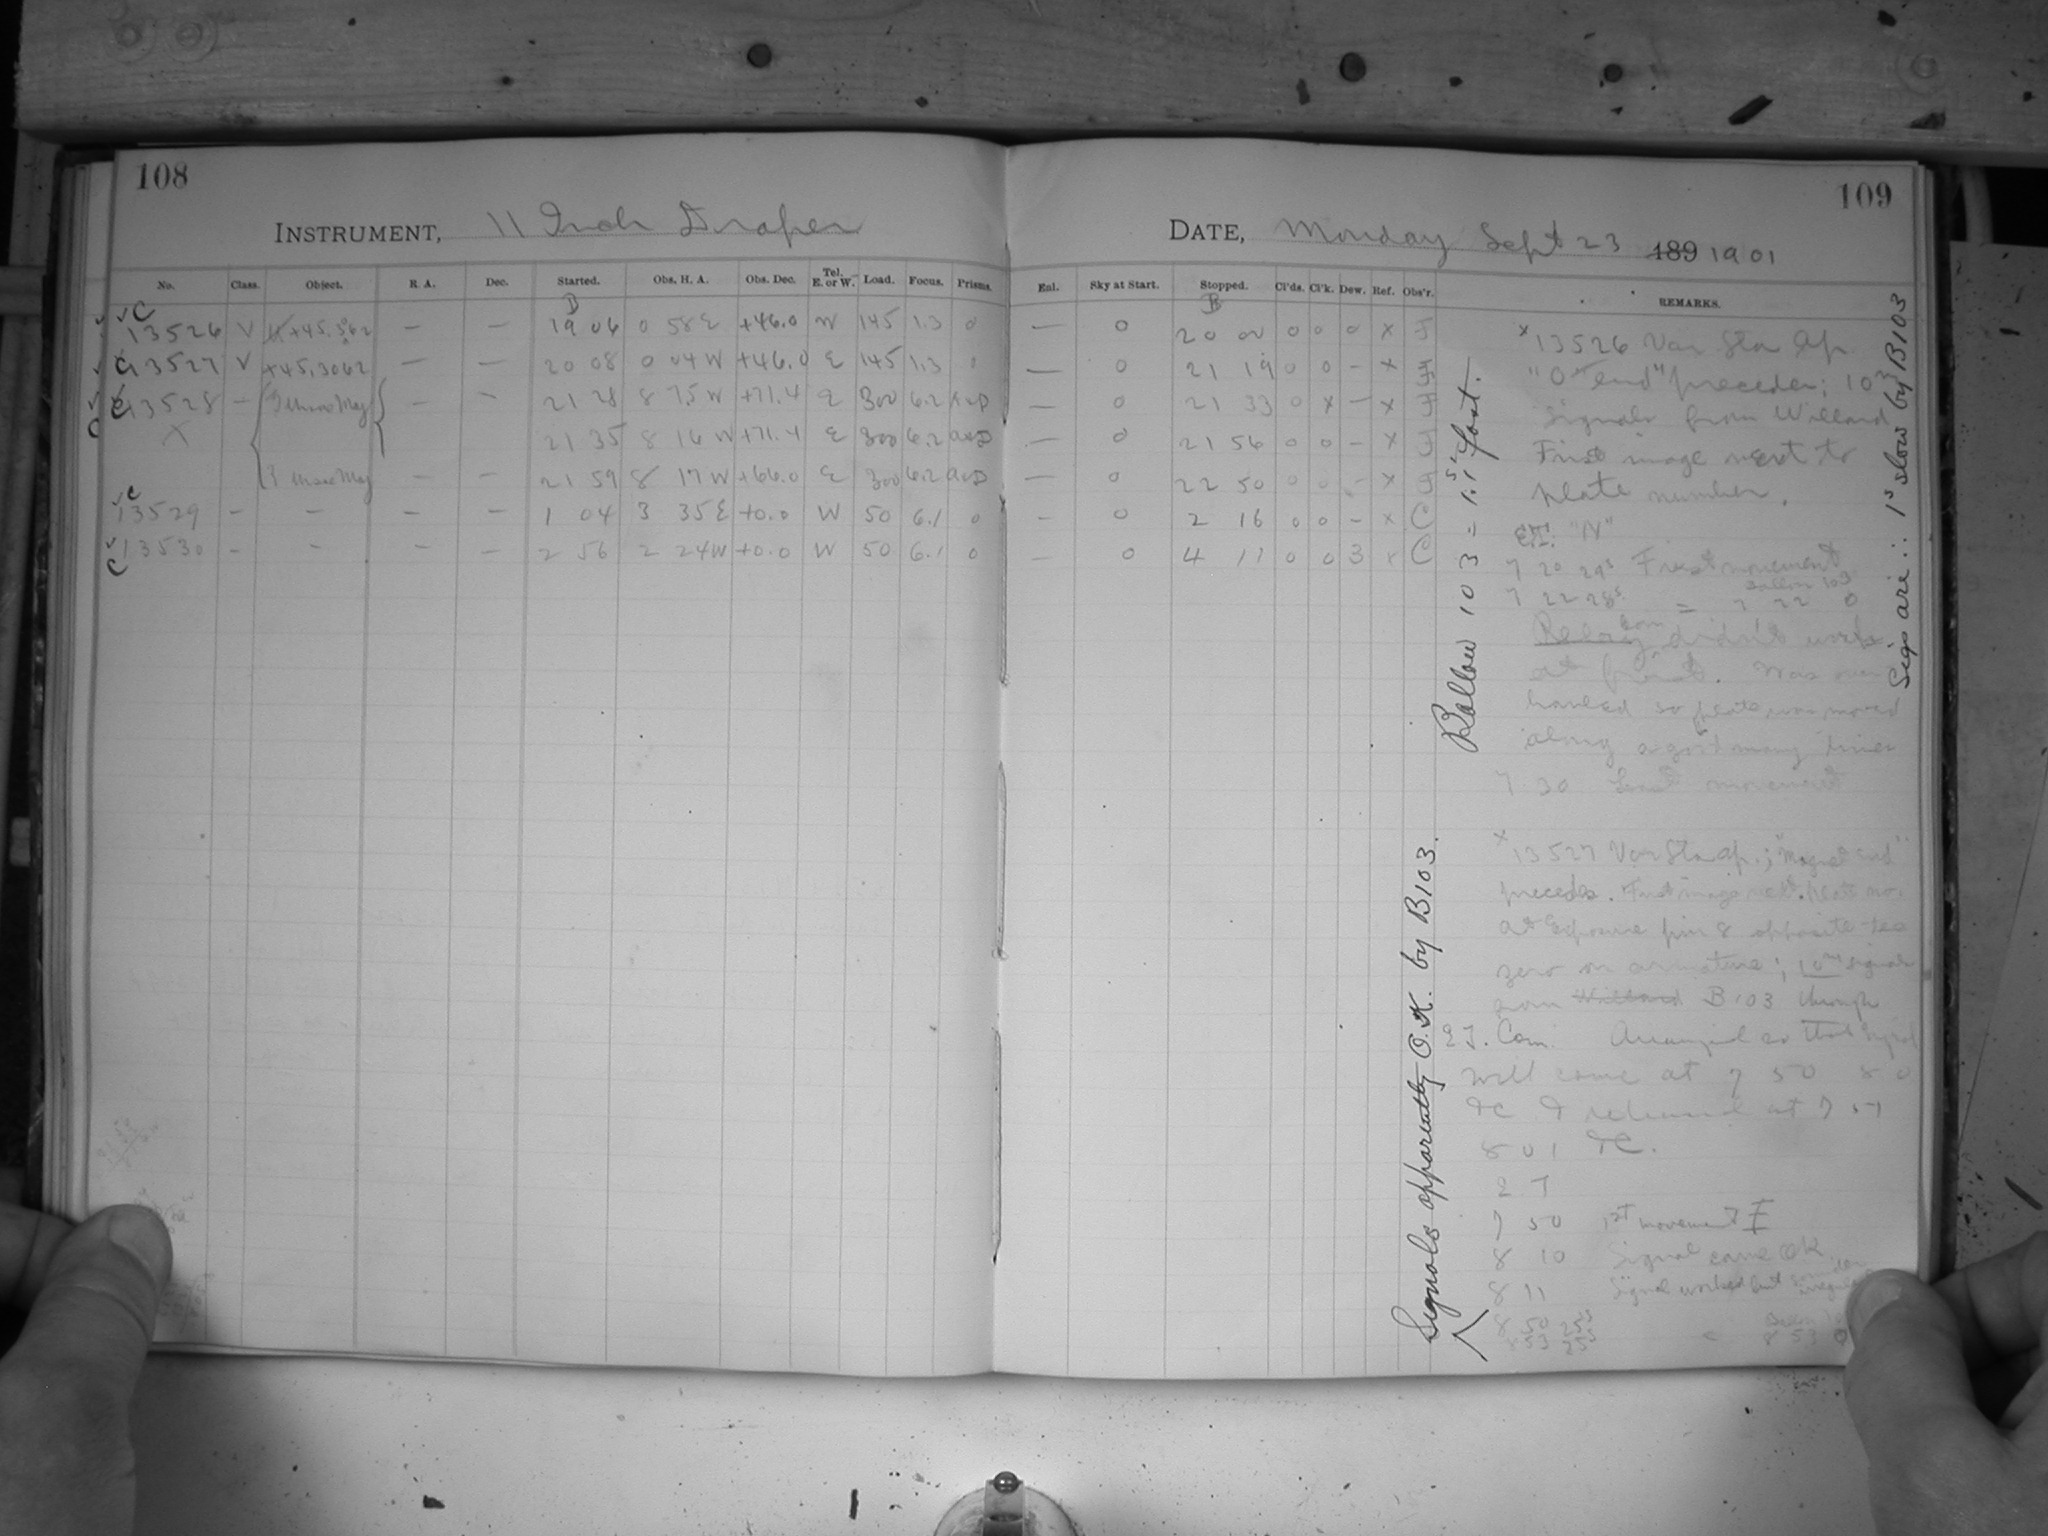 108
INSTRUMENT, 11 Inch Draper
No. Class. Object. R. A. Dec. Started. Obs. H. A. Obs. Dec. Tel. E. or W. Load. Focus. Prisms.
13526 V +45.3062 — — 19 06 0 58 E +46.0 W 145 1.3 0
13527 V +45.3062 — — 20 08 0 04 W +46.0 E 145 1.3
13528 — — — 21 28 8 75 W +71.4 E 300 6.2
X 21 35 8 16 W +71.4 E 300 6.2
— — 21 59 8 17 W +66.0 E 300 6.2
13529 — — — — 1 04 3 35 E +0.0 W 50 6.1 0
13530 — — — — 2 56 2 24 W +0.0 W 50 6.1 0
109
DATE, Monday Sept 23 189 1901
Enl. Sky at Start. Stopped. Cl'ds. Cl'k. Dew. Ref. Obs'r. REMARKS.
— 0 20 00 0 0 0 x F
— 0 21 19 0 0 – x F
— 0 21 33 0 x – x F
— 0 21 56 0 0 – x F
— 0 22 50 0 0 – x F
– 0 2 16 0 0 – x C
— 0 4 11 0 0 3 x C
x 13526 Var Sta Ap.
"O" end" precedes; 10
Signals from Willard
First image next to
plate number.
E.T. "N"
7 20 29s First movement
7 22 28s = 7 22 0
Relay didn't work
at first. Was over
hauled so plate was moved
along a good many times
7 30 Last movement
x 13527 Var Sta Ap.; "Magnet end"
precedes. First image next. plate no.
at Exposure pin 8 opposite the
zero on armature; 10 signals
from Willard B 103 through
E.T. Com. Arranged so that signal
will come at 7 50 8 0
&c & released at 7 51
8 01 &c.
E T
7 50 1st movement F
8 10 Signal came OK
8 11 Signal worked but
8 50 25s
8 53 25s 8 53 0
Ballou 103 = 1.1s fast.
Signals apparently O.K. by B103.
Sigs are ∴ 1s slow by B103